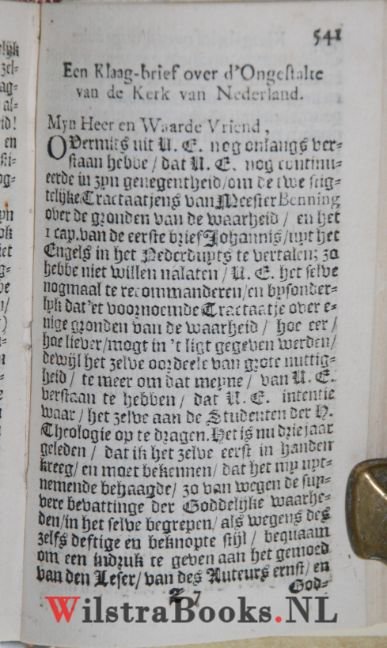 541
Een Klaag-brief over d'Ongestalte
van de Kerk van Nederland.
Myn Heer en Waarde Vriend,
OVermits uit U. E. nog onlangs ver-
staan hebbe / dat U. E. nog continu-
eerde in zyn genegentheid / om de twe stig-
telijke Tractaatjens van Meester Benning
over de gronden van de waarheid / en het
1 cap. van de eerste brief Johannis / uyt het
Engels in het Nederduyts te vertalen; zo
hebbe niet willen nalaten / U. E. het selve
nogmaal te recommanderen / en bysonder-
lyk dat 'et voornoemde Tractaatje over e-
nige gronden van de waarheid / hoe eer /
hoe liever / mogt in 't ligt gegeven werden /
dewijl het zelve oordeele van grote nuttig-
heid / te meer om dat meyne / van U. E.
verstaan te hebben / dat U. E. intentie
waar / het zelve aan de Studenten der H.
Theologie op te dragen. Het is nu drie jaar
geleden / dat ik het zelve eerst in handen
kreeg / en moet bekennen / dat het my uyt-
nemende behaagde / zo van wegen de suy-
vere bevattinge der Goddelijke waarhe-
den / in het selve begrepen / als wegens des
zelfs deftige en beknopte stijl / bequaam
om een indruk te geven aan het gemoed
van den Leser / van des Auteurs ernst / en
Z 7 God-
WilstraBooks.NL